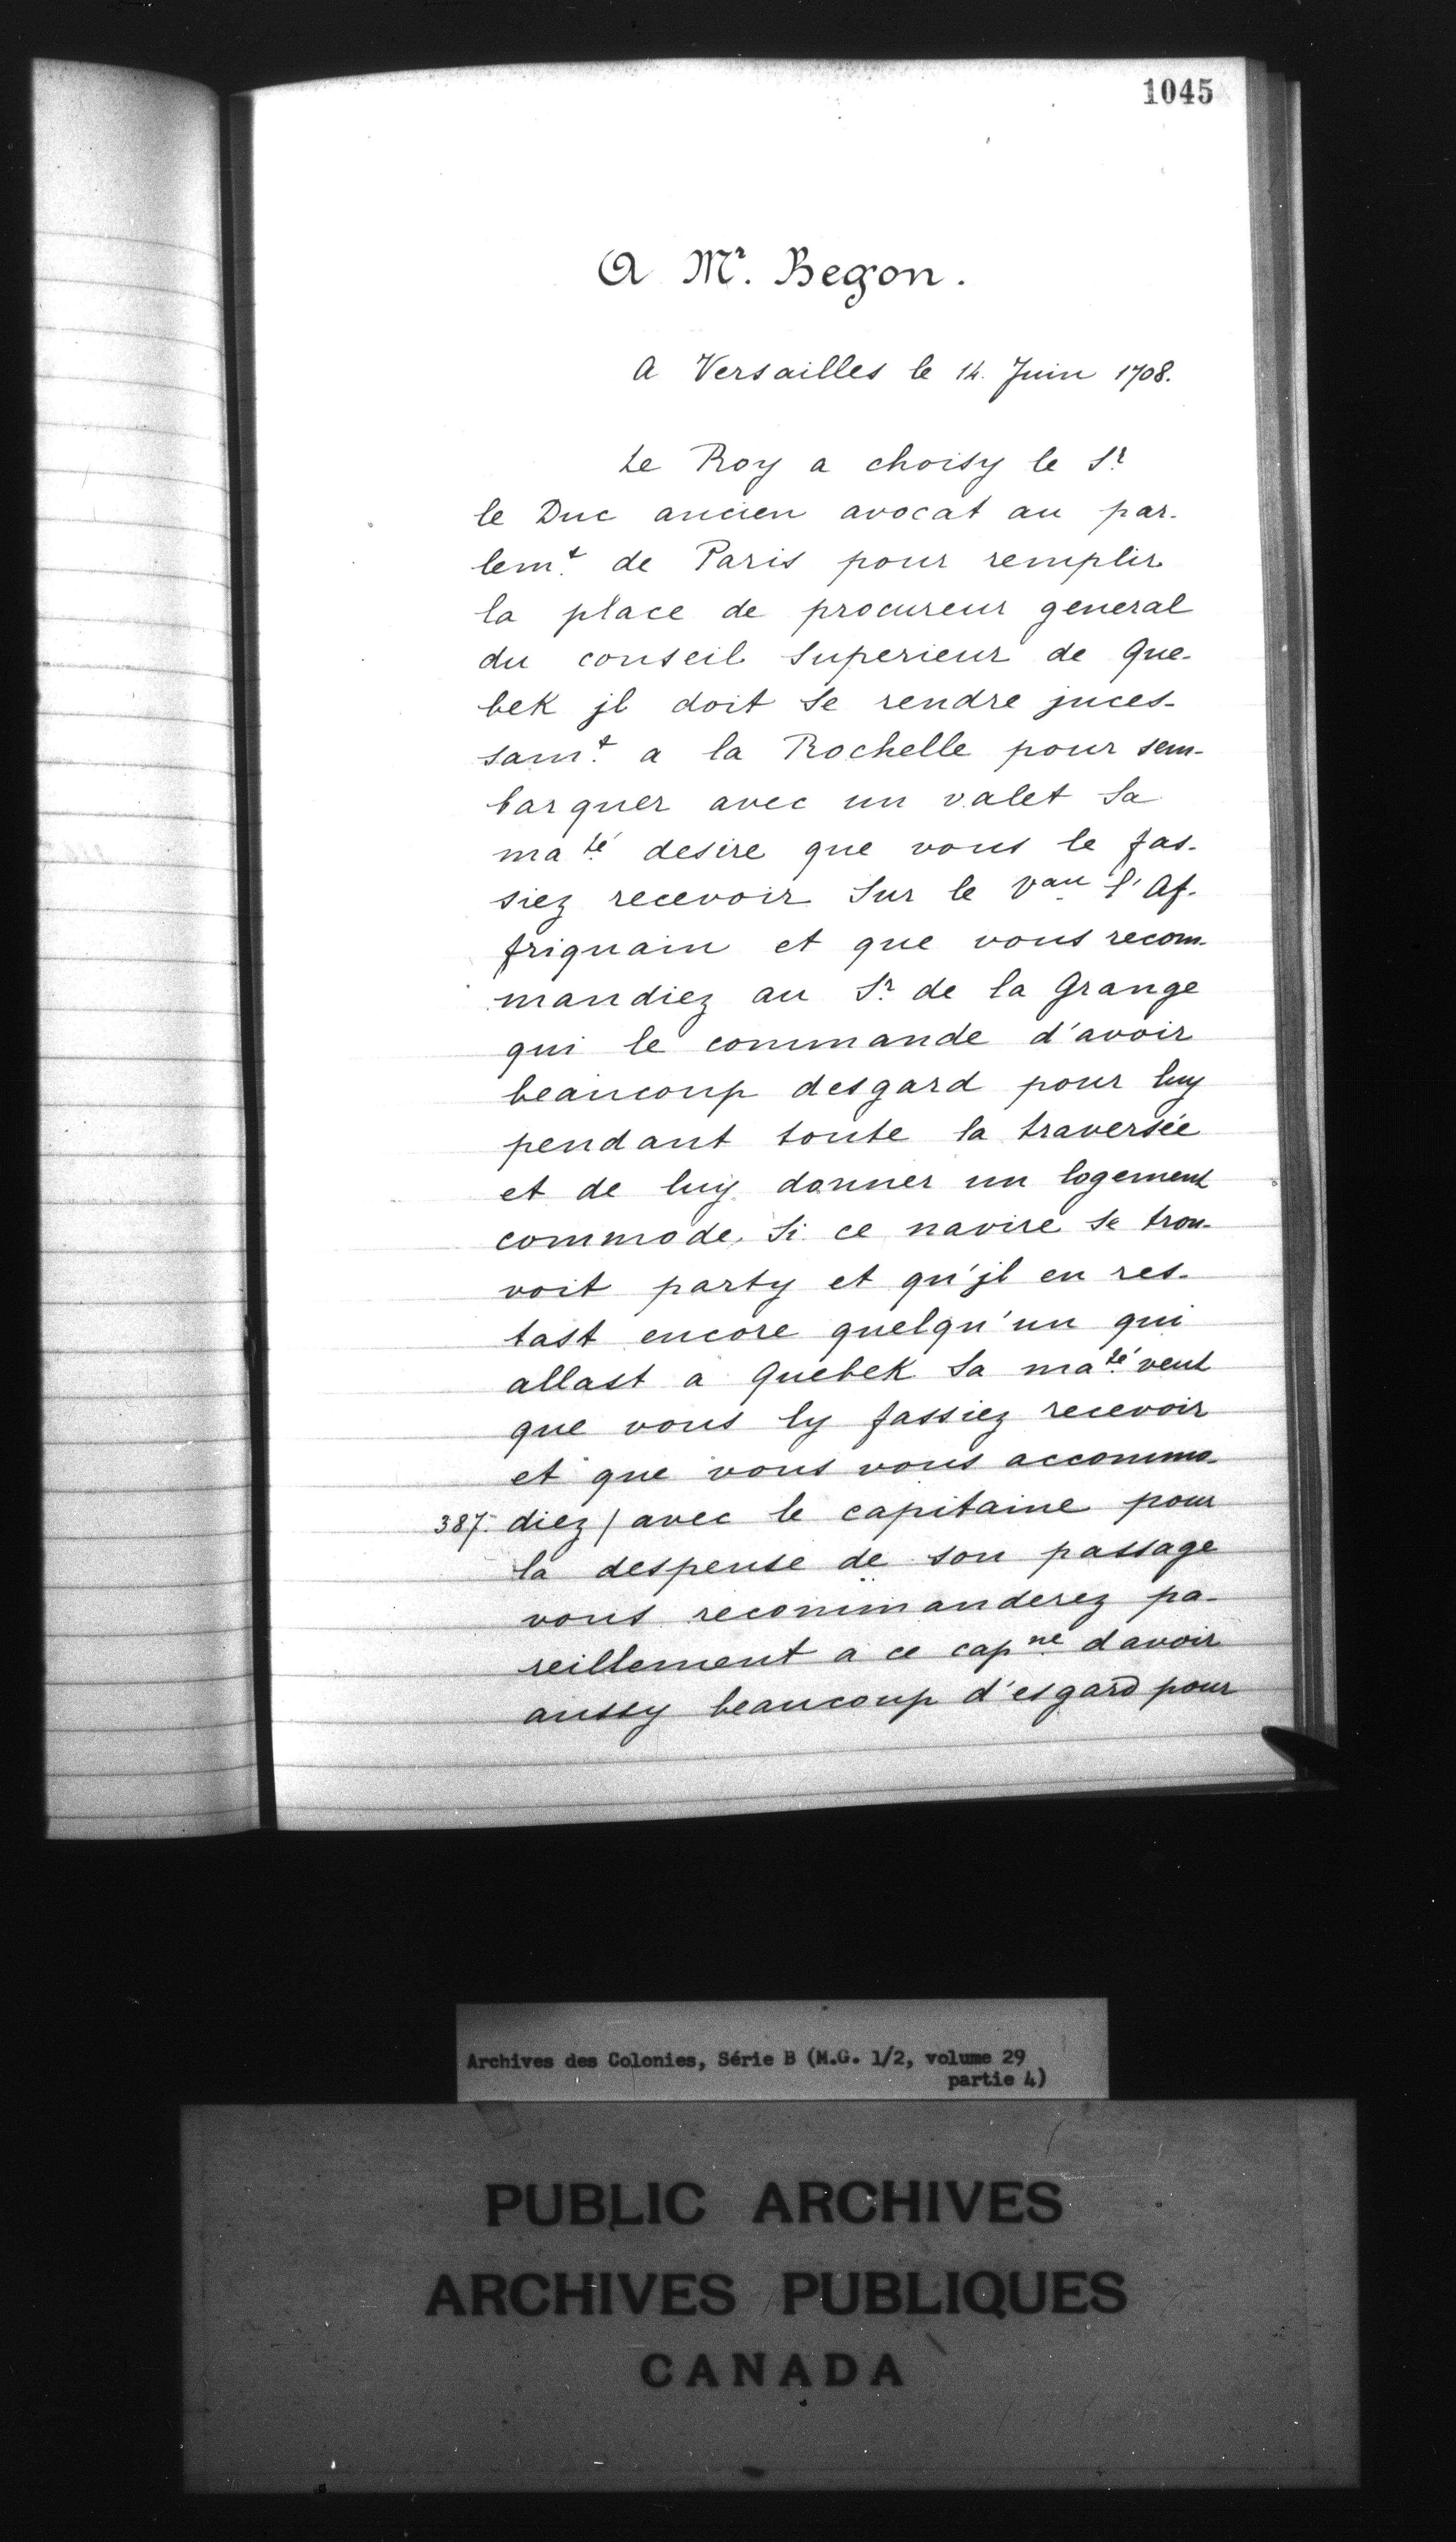 1045
A Mr. Begon.
A Versailles le 14. Juin 1708.
Le Roy a choisy le Sr
le Duc ancien avocat au par-
lemt. de Paris pour remplir
la place de procureur general
du conseil Superieur de Que-
bek jl doit Se rendre jnces-
samt. a la Rochelle pour sem-
barquer avec un valet Sa
maté desire que vous le fas-
siez recevoir Sur le Vau l'Af-
friquain et que vous recom-
mandiez au Sr. de la Grange
qui le commande d'avoir
beaucoup desgard pour luy
pendant toute la traversée
et de luy donner un logement
commode. Si ce navire Se trou-
voit party et qu'jl en res-
tast encore quelqu'un qui
allast a Quebek Sa maté veut
que vous ly fassiez recevoir
et que vous vous accommo-
387. diez / avec le capitaine pour
la despense de son passage
vous recommanderez pa-
reillement a ce capne d avoir
aussy beaucoup d'esgard pour
Archives des Colonies, Série B (M.G. 1/2, volume 29
partie 4)
PUBLIC ARCHIVES
ARCHIVES PUBLIQUES
CANADA